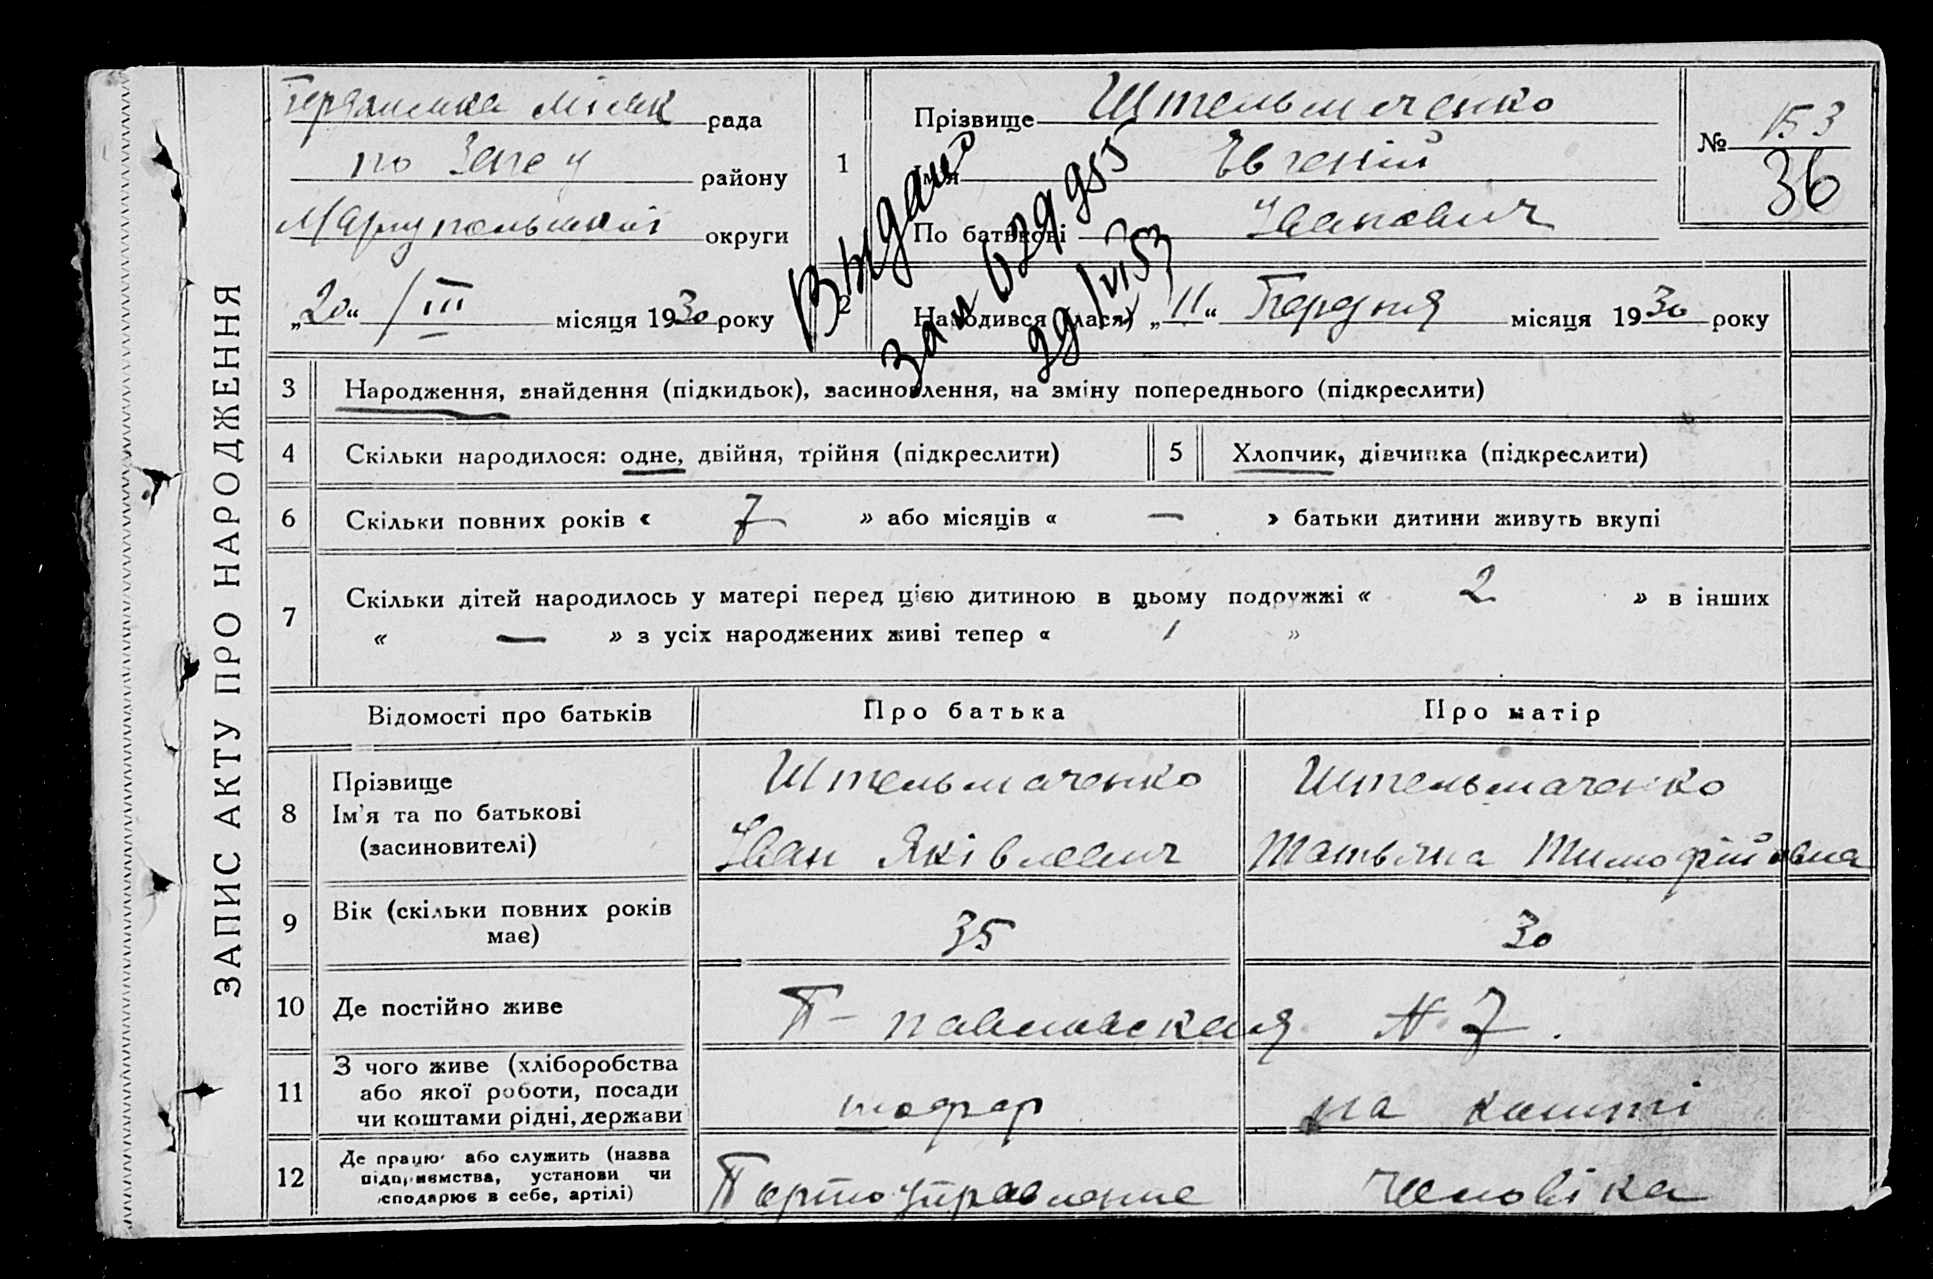 ЗАПИС АКТУ ПРО НАРОДЖЕННЯ
рада
по Загсу району
Маріупольської округи
„20“ / III місяця 1930 року
1
Прізвище Штельмаченко
Ім'я Євгеній
По батькові Іванович
№ 153
36
2 Народився (лася) „11“ Березня місяця 1930 року
3 Народження, знайдення (підкидьок), засиновлення, на зміну попереднього (підкреслити)
4 Скільки народилося: одне, двійня, трійня (підкреслити) 5 Хлопчик, дівчинка (підкреслити)
6 Скільки повних років « 7 » або місяців « — » батьки дитини живуть вкупі
7 Скільки дітей народилось у матері перед цією дитиною в цьому подружжі « 2 » в інших
« — » з усіх народжених живі тепер « 1 »
Відомості про батьків Про батька Про матір
8 Прізвище Штельмаченко Штельмаченко
Ім'я та по батькові Іван Яківлевич Татьяна Тимофійовна
(засиновителі)
9 Вік (скільки повних років має) 35 30
10 Де постійно живе № 7.
11 З чого живе (хліборобства або якої роботи, посади чи коштами рідні, держави шофер на кошті
12 Де працює або служить (назва підприємства, установи чи господарює в себе, артілі) Портоуправление Чоловіка